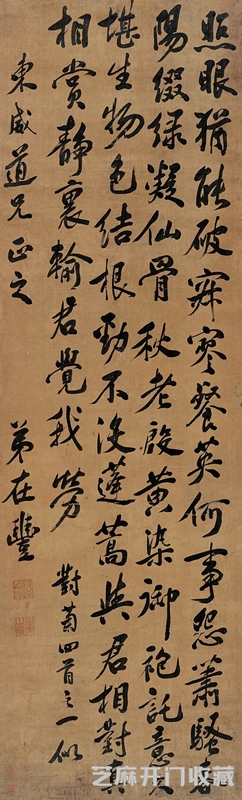 照眼猶能破寂寥餐英何事怨蕭騷春
陽綴綠凝仙骨秋老殷黃染御袍託意久
堪生物色結根勁不沒蓬蒿與君相對真
相賞靜裏輸君覺我勞 對菊四首之一似
東咸道兄正之 弟在豐
芝麻开门收藏